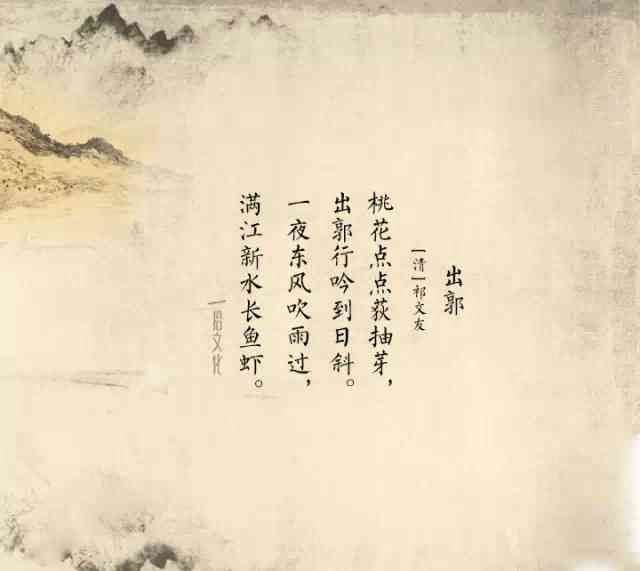 出郭
[清]祁文友
桃花点点荻抽芽，
出郭行吟到日斜。
一夜东风吹雨过，
满江新水长鱼虾。
一俗文化